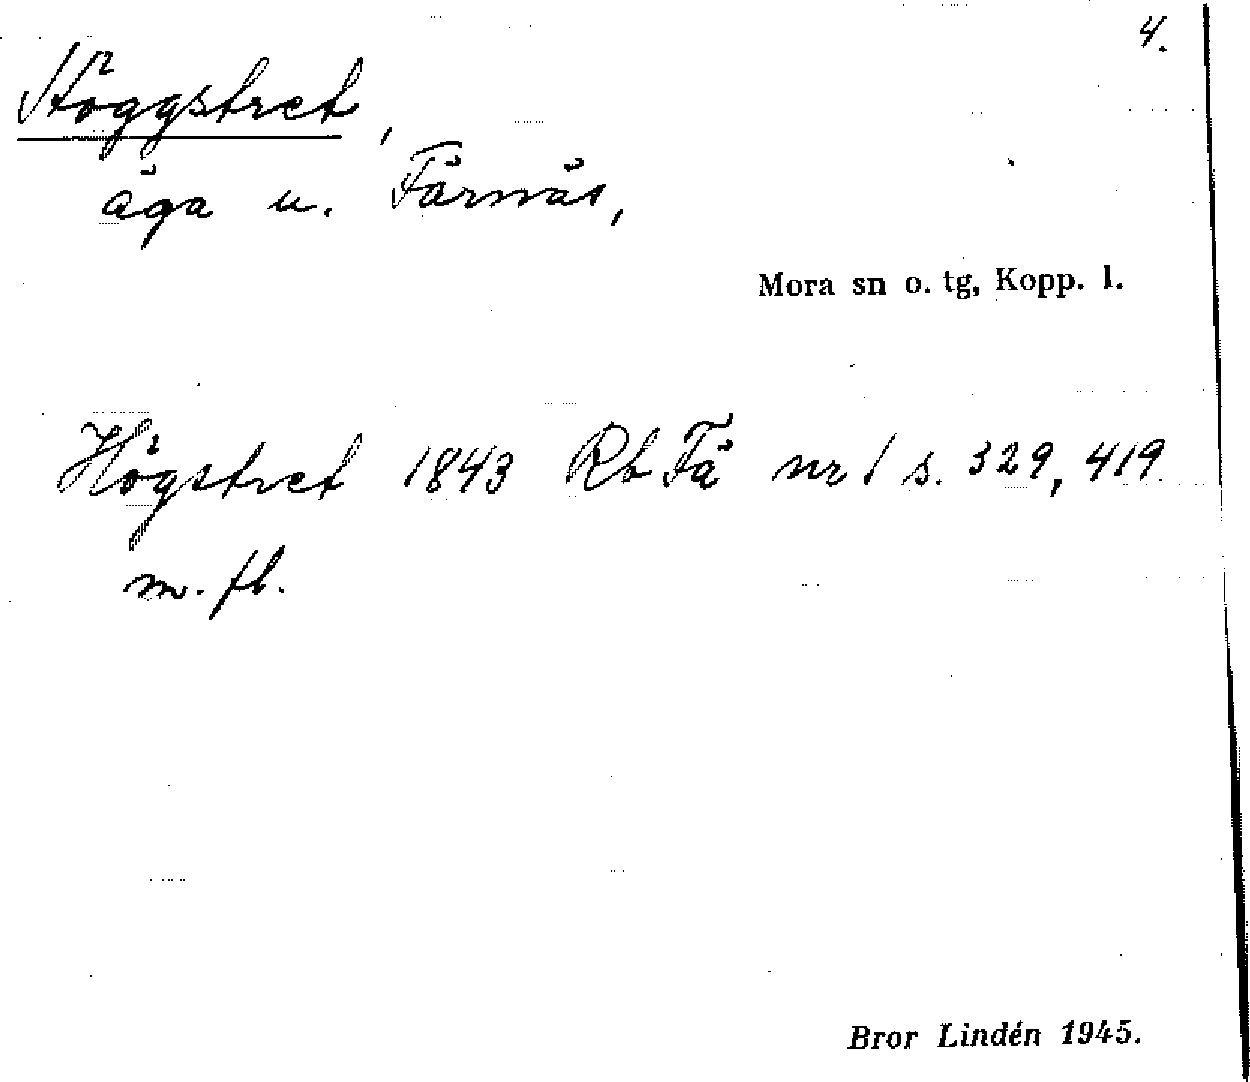 4.
Höggstret,
äga u. Färnäs,
Mora sn o. tg, Kopp. l.
Högstret 1843 Rb Fä nr 1 s. 329, 419.
m. fl.
Bror Lindén 1945.